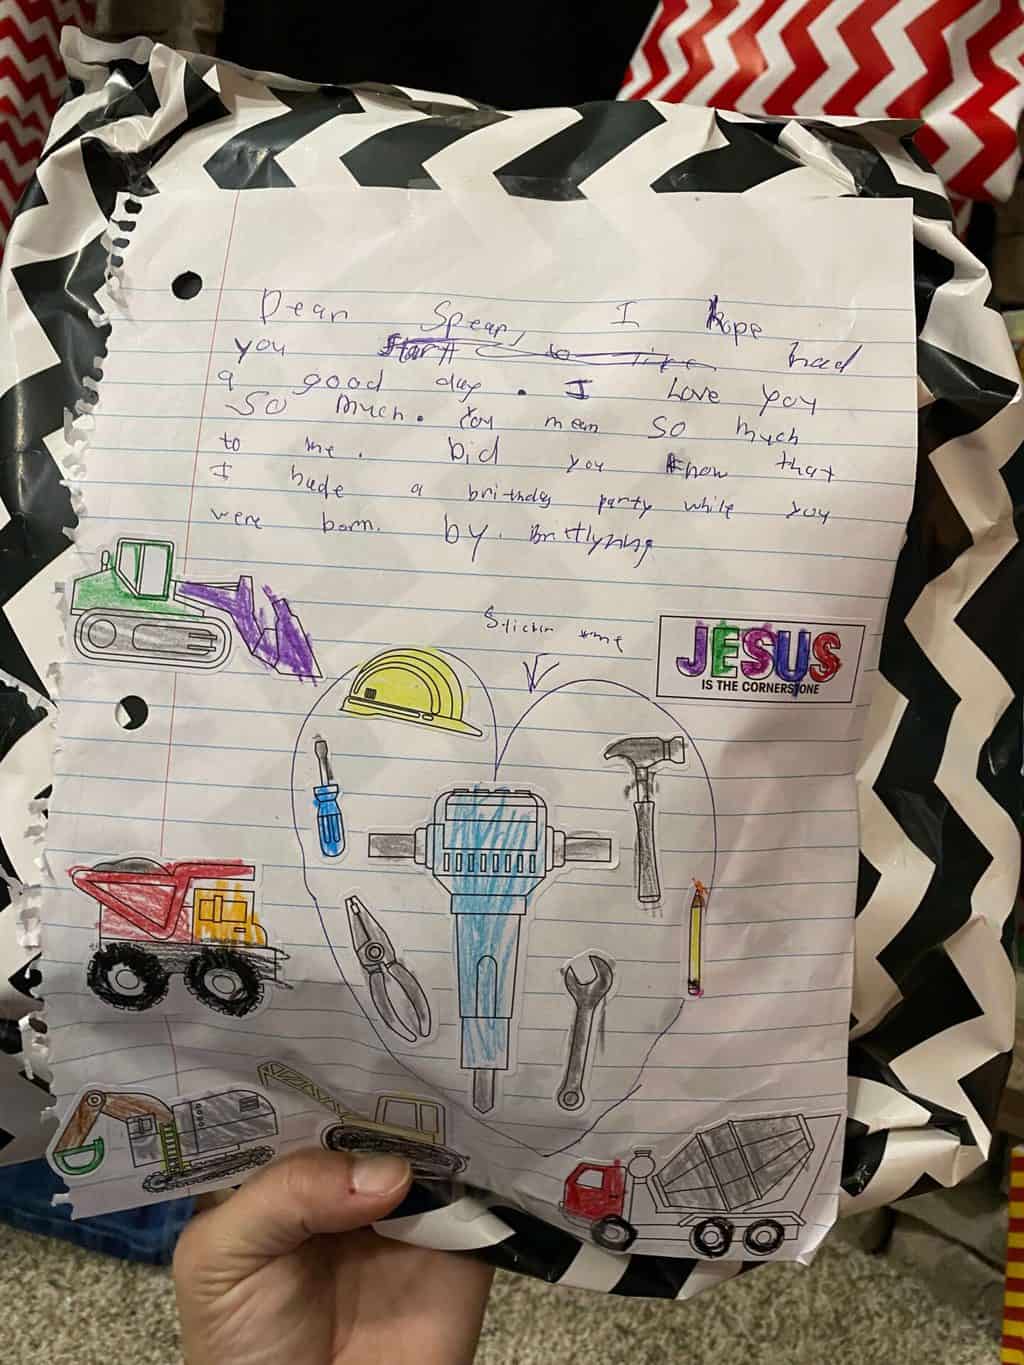 Dear Spear, I hope
you had
a good day. I Love you
so much. you mean so much
to me. bid you know that
I hade a brithdg party while you
were born. by. Brittlynng
Sticker me
JESUS
IS THE CORNERSTONE